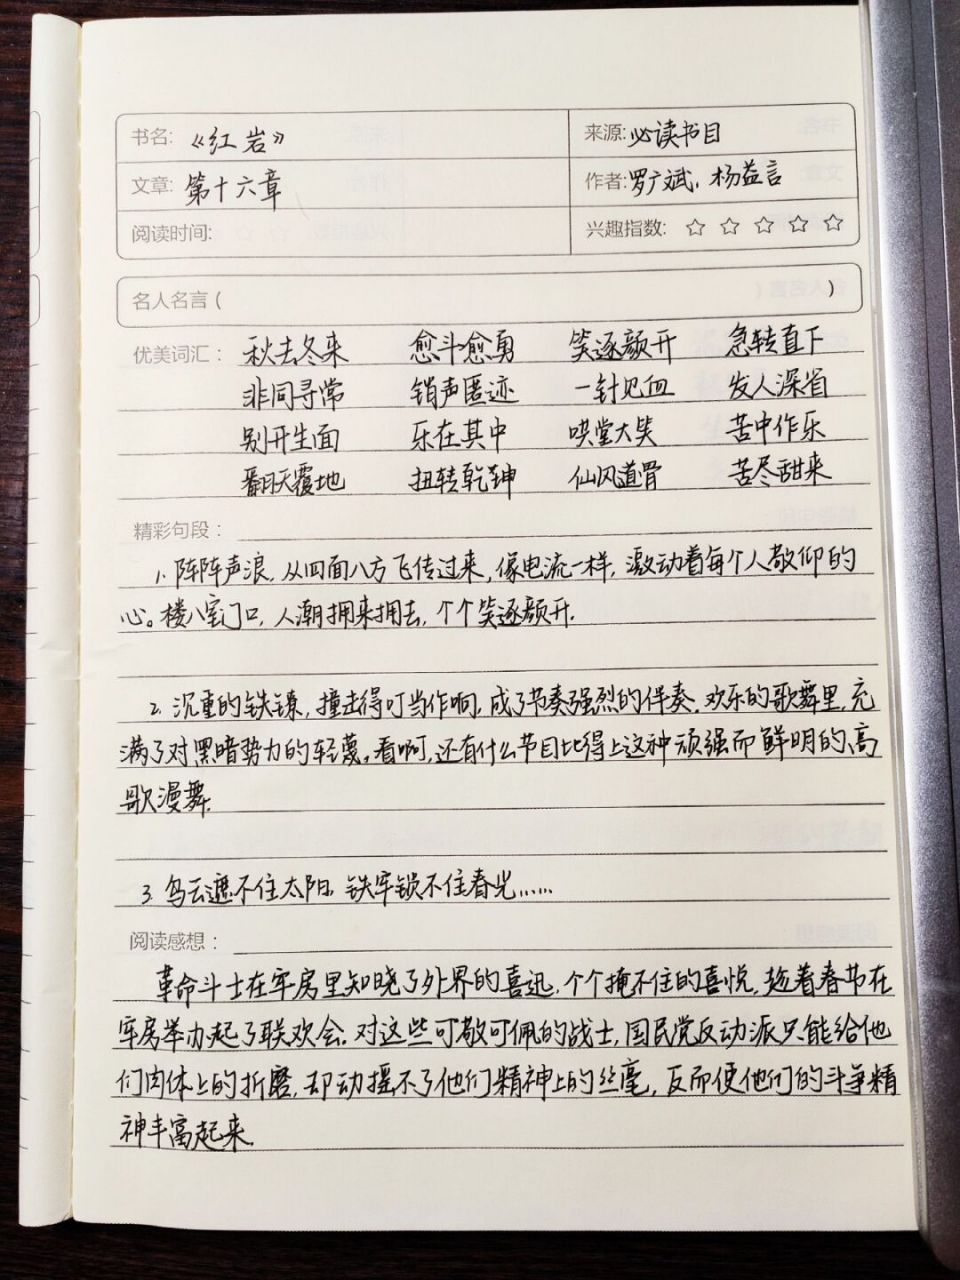 书名: 《红岩》 来源: 必读书目
文章: 第十六章 作者: 罗广斌, 杨益言
阅读时间: 兴趣指数: ☆ ☆ ☆ ☆ ☆
名人名言 ( )
优美词汇: 秋去冬来 愈斗愈勇 笑逐颜开 急转直下
非同寻常 销声匿迹 一针见血 发人深省
别开生面 乐在其中 哄堂大笑 苦中作乐
翻天覆地 扭转乾坤 仙风道骨 苦尽甜来
精彩句段:
1. 阵阵声浪, 从四面八方飞传过来, 像电流一样, 激动着每个人敬仰的
心。楼八室门口, 人潮拥来拥去, 个个笑逐颜开.
2. 沉重的铁镣, 撞击得叮当作响, 成了节奏强烈的伴奏. 欢乐的歌舞里, 充
满了对黑暗势力的轻蔑。看啊, 还有什么节目比得上这种顽强而鲜明的高
歌漫舞.
3. 乌云遮不住太阳. 铁牢锁不住春光......
阅读感想:
革命斗士在牢房里知晓了外界的喜迅, 个个掩不住的喜悦, 趁着春节在
牢房举办起了联欢会. 对这些可敬可佩的战士, 国民党反动派只能给他
们肉体上的折磨, 却动摇不了他们精神上的丝毫, 反而使他们的斗争精
神丰富起来.